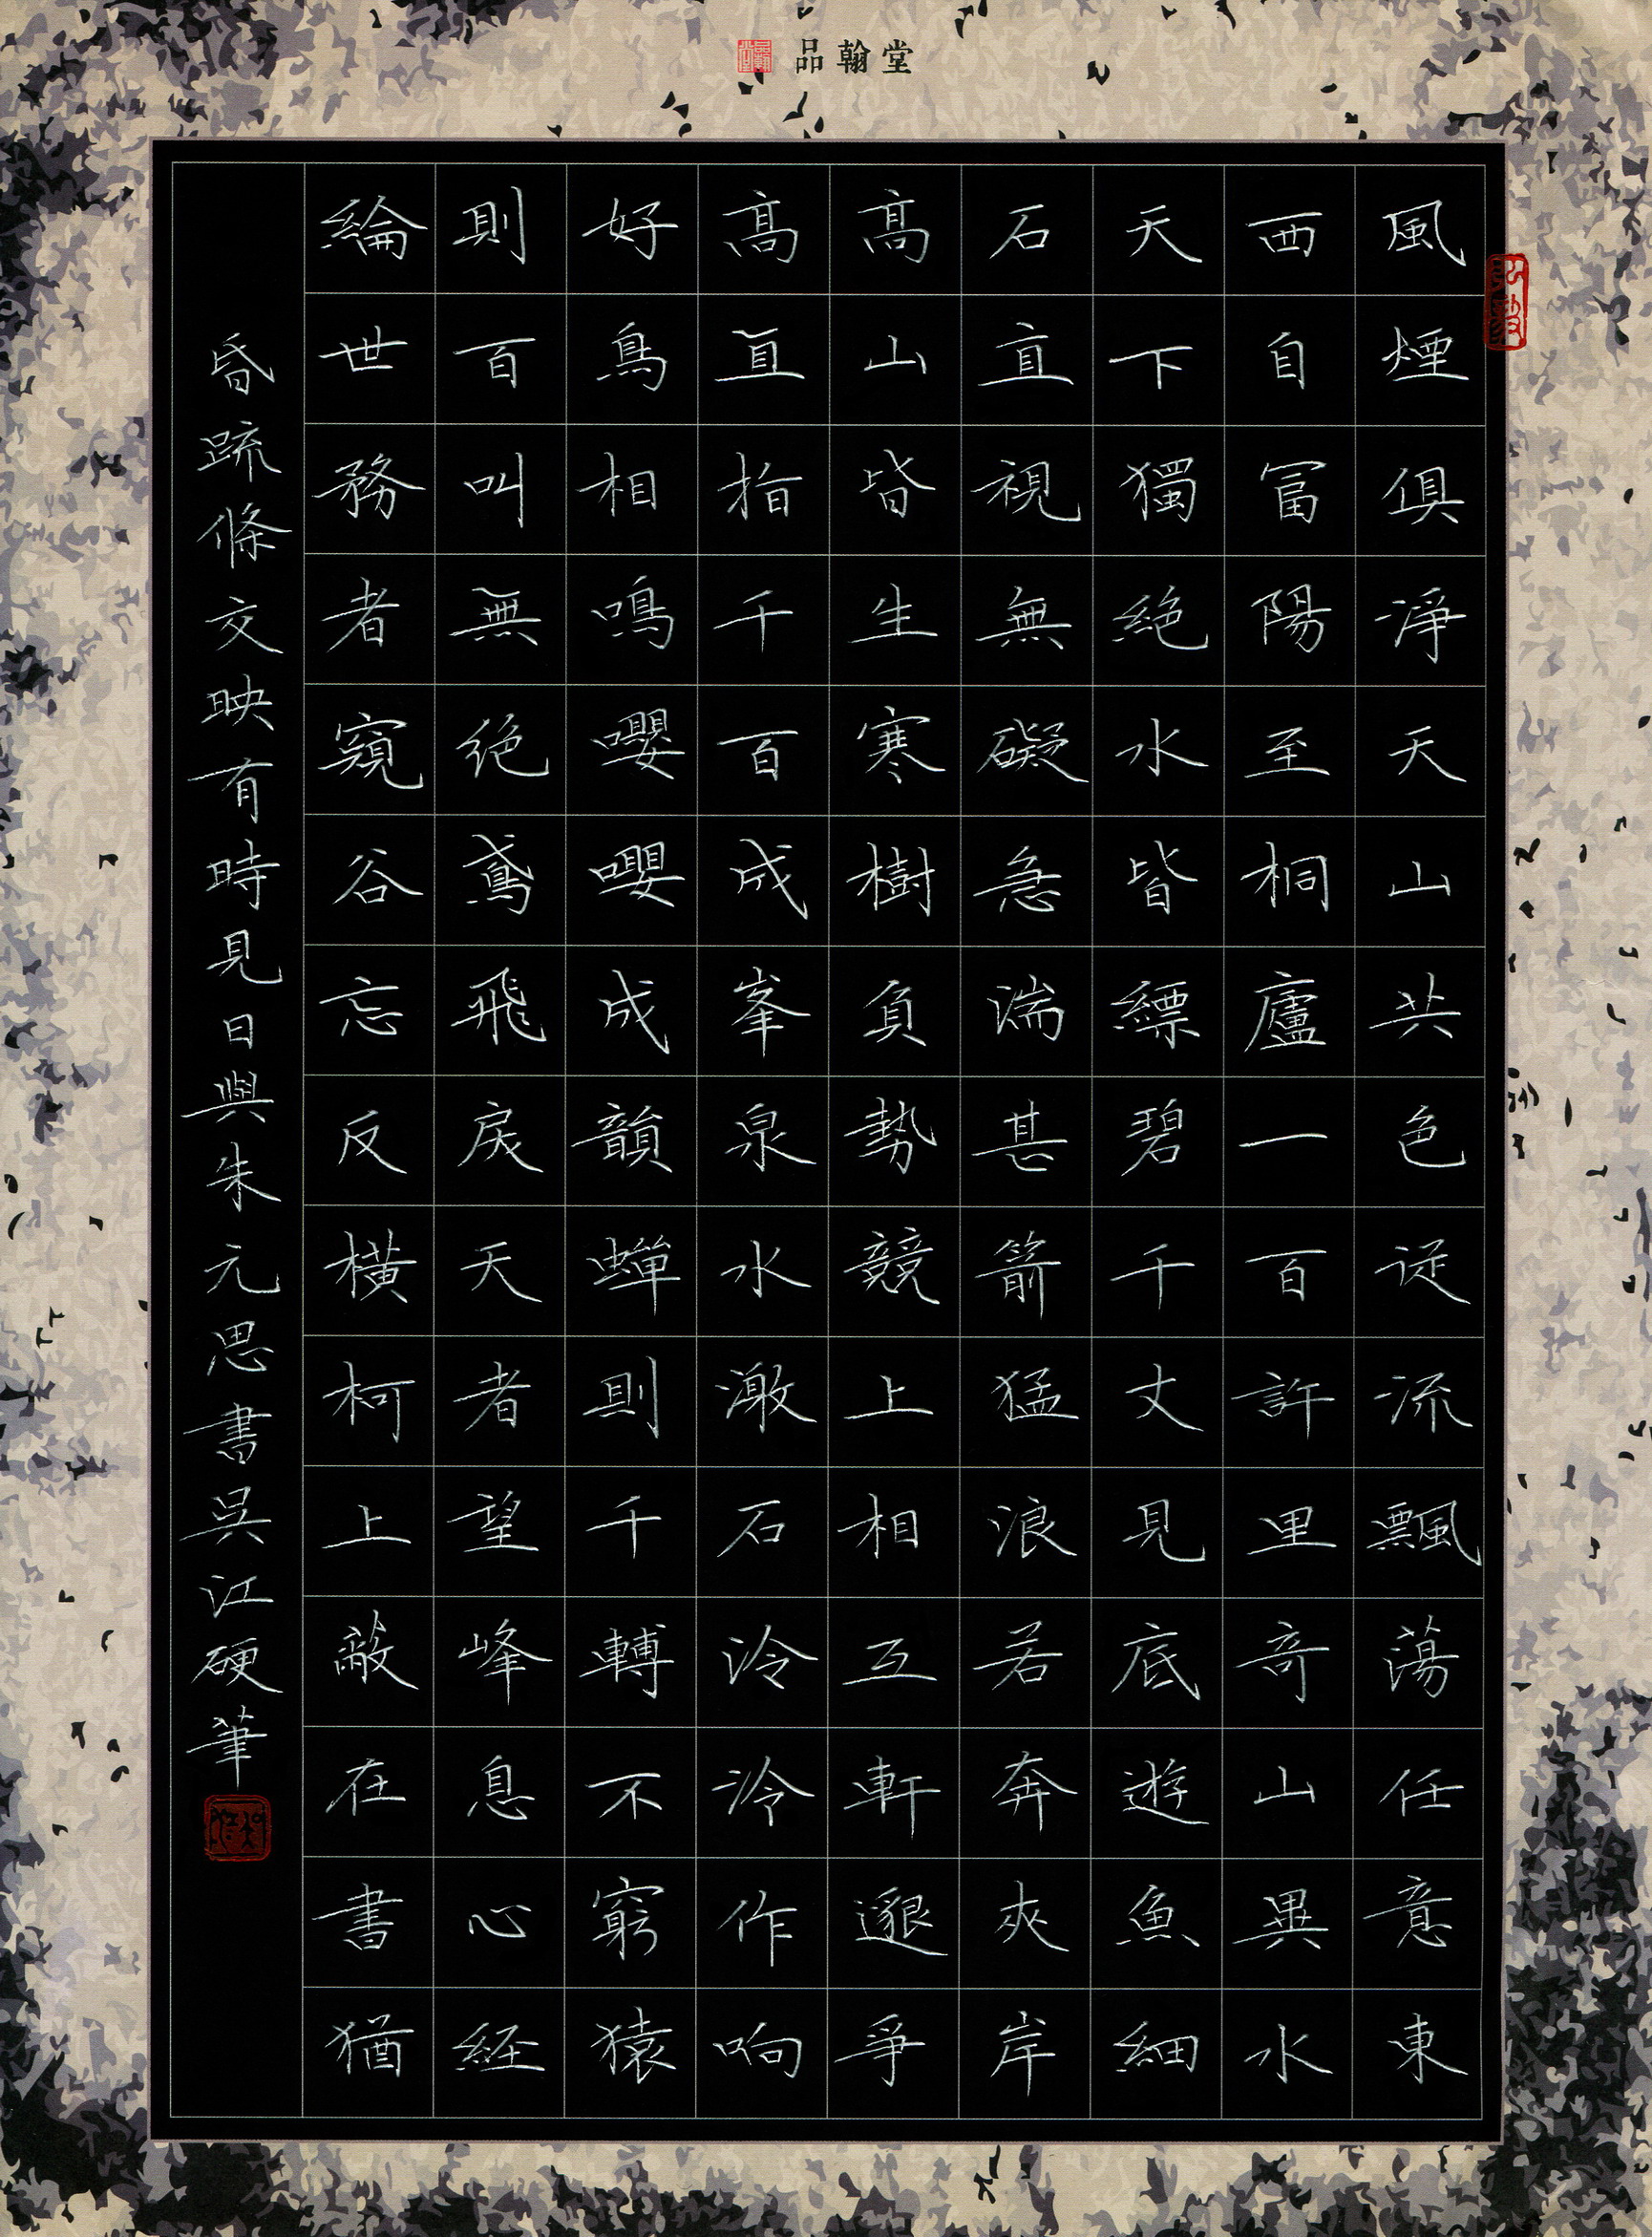 品翰堂
風煙俱淨天山共色從流飄蕩任意東
西自冨陽至桐廬一百許里奇山異水
天下獨絕水皆縹碧千丈見底遊魚細
石直視無礙急湍甚箭猛浪若奔夾岸
髙山皆生寒樹負勢競上相互軒邈爭
髙直指千百成峯泉水激石泠泠作响
好鳥相鳴嚶嚶成韻蟬則千轉不窮猿
則百叫無绝鳶飛戾天者望峰息心経
綸世務者窺谷忘反橫柯上蔽在書猶
昏疏條交映有時見日與朱元思書吳江硬筆